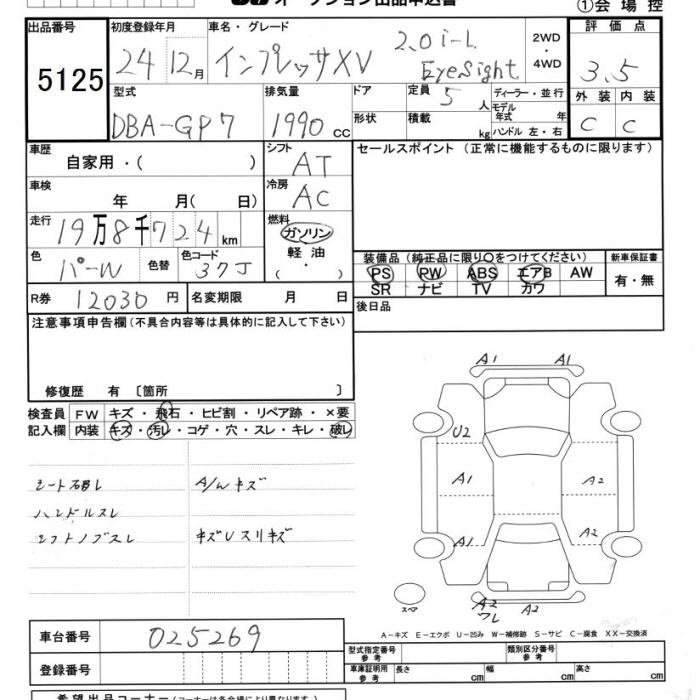 オークション出品申込書
①会場控
出品番号 5125
初度登録年月 24年 12月
車名・グレード インプレッサXV 2.0i-L EyeSight
2WD・4WD
評価点 3.5
外装 C 内装 C
型式 DBA-GP7
排気量 1990 cc
ドア
形状
定員 5人
積載 kg
ディーラー・並行
モデル年式 年式
ハンドル 左・右
車歴 自家用・( )
シフト AT
セールスポイント (正常に機能するものに限ります)
車検 年 月( 日)
冷房 AC
走行 19万8千724km
燃料 ガソリン 軽油 ・( )
色 パールW 色替 色コード 37J
装備品 (純正品に限り○をつけてください)
PS PW ABS エアB AW
SR ナビ TV カワ
新車保証書 有・無
R券 12030円
名変期限 月 日
後日品
注意事項申告欄(不具合内容等は具体的に記入して下さい)
修復歴 有 〔箇所 〕
検査員 FW キズ・飛石・ヒビ割・リペア跡・×要
記入欄 内装 キズ・汚レ・コゲ・穴・スレ・キレ・破レ
シート破レ A/Wキズ
ハンドルスレ
シフトノブスレ
A1 A1
U2
A1 A2
A1 A2
A2
ワレ
スペア
A-キズ E-エクボ U-凹み W-補修跡 S-サビ C-腐食 XX-交換済
車台番号 025269
登録番号
型式指定番号 参考
類別区分番号 参考
車庫証明用 参考 長さ cm 幅 cm 高さ cm
希望出品コーナー